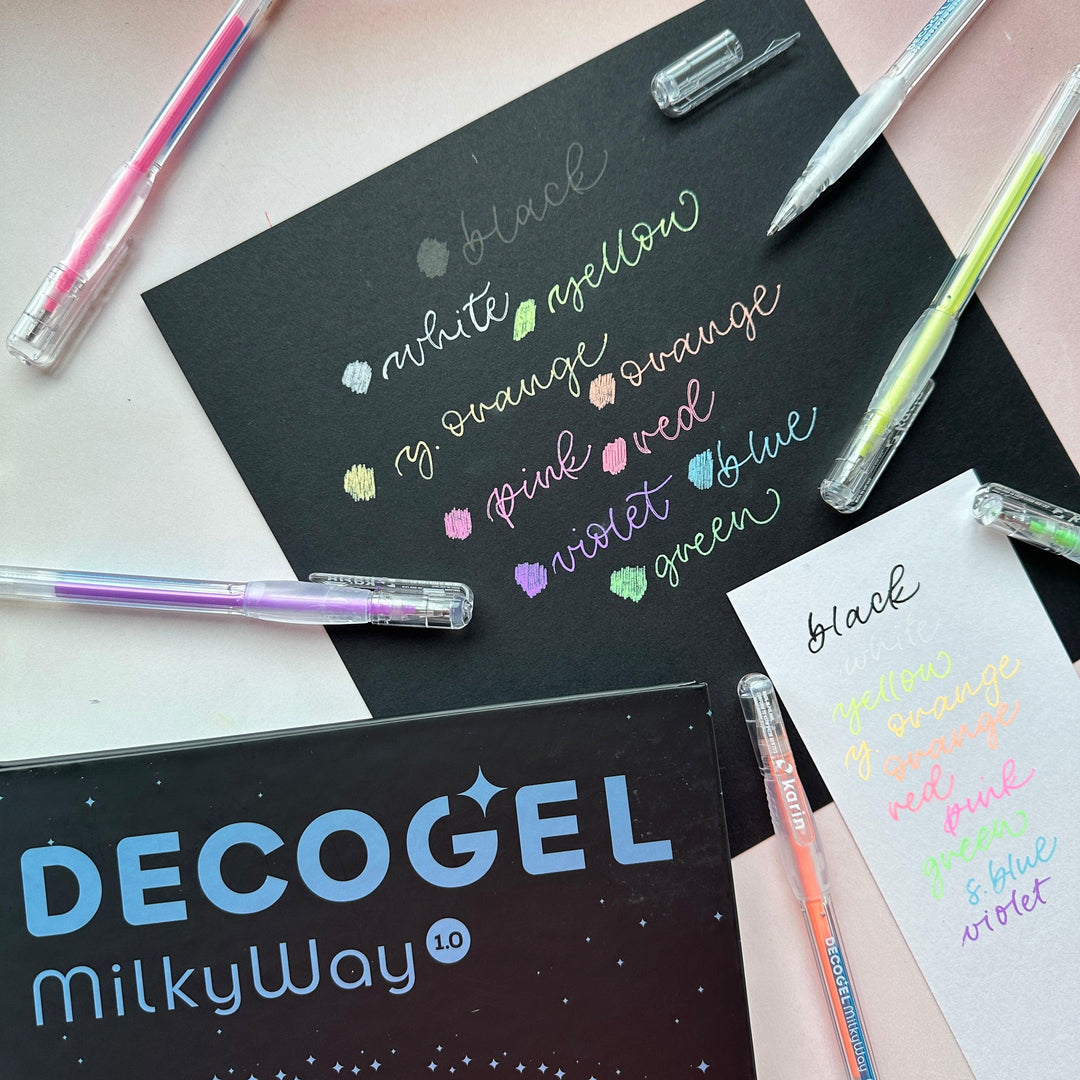 black
white yellow
y. orange orange
pink red
violet blue
green
black
white
yellow
y. orange
orange
red
pink
green
s. blue
violet
karin
DECOGEL MilkyWay
DECOGEL
MilkyWay 1.0